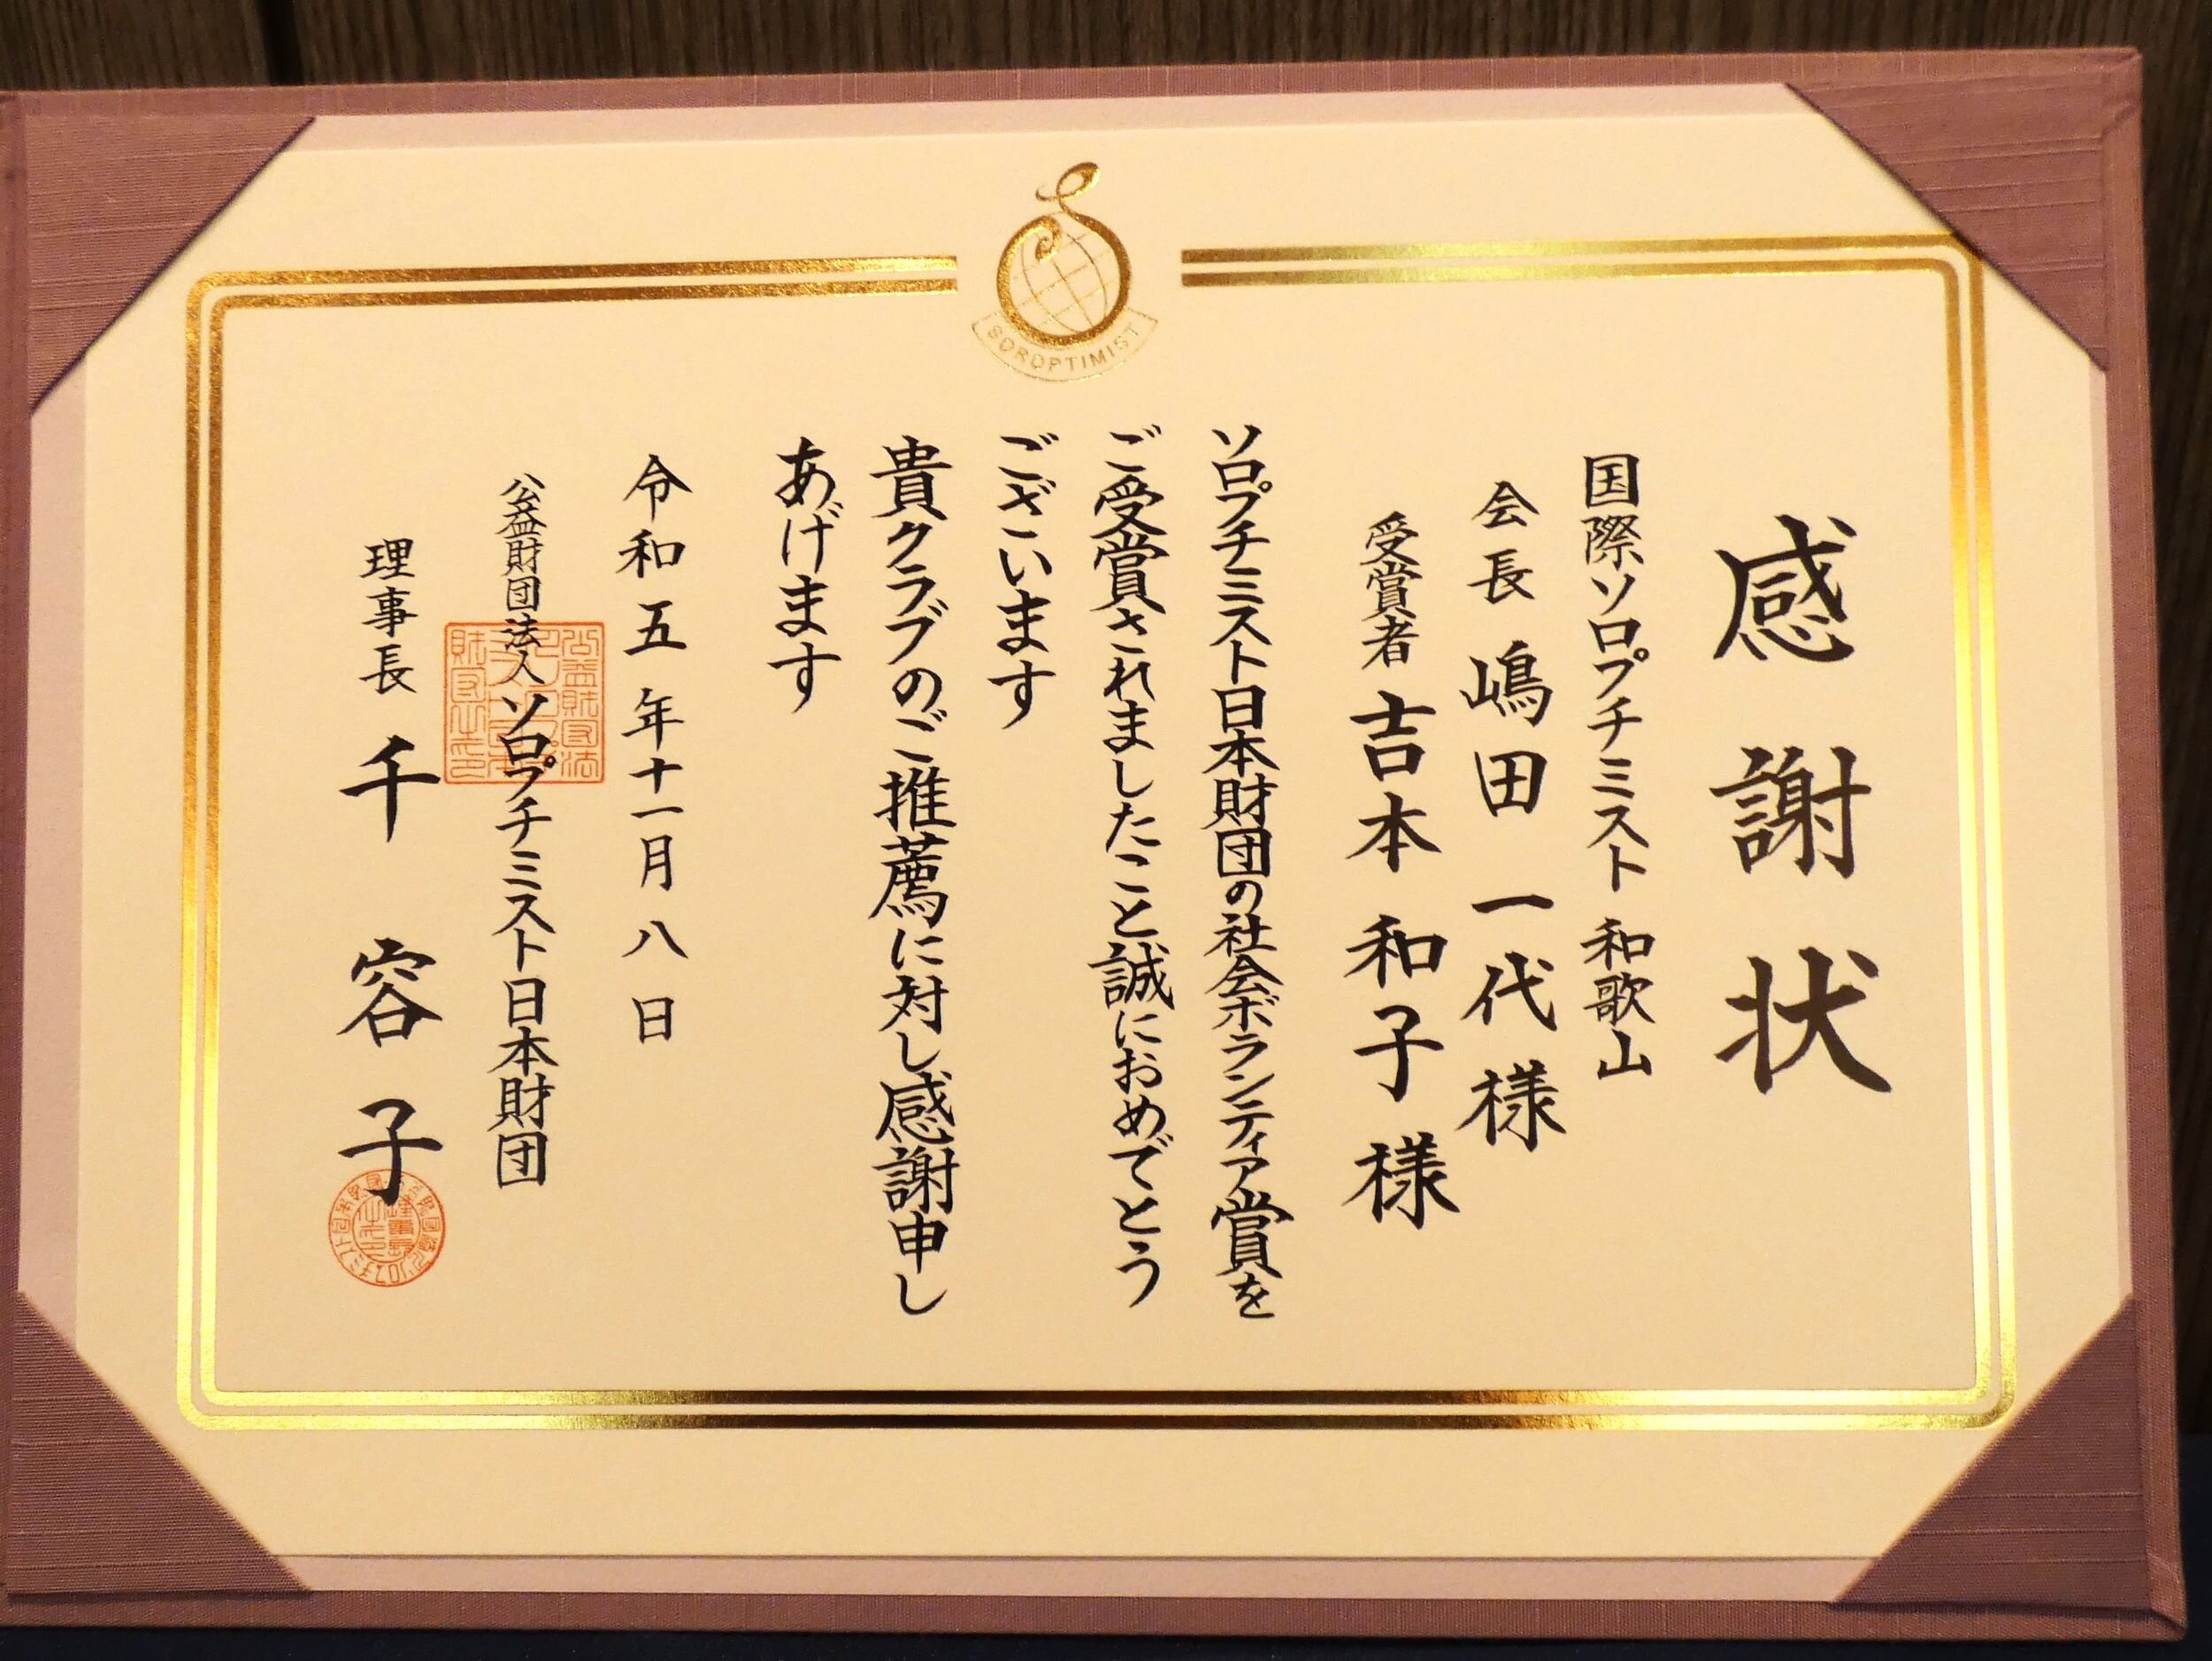 SOROPTIMIST
感謝状
国際ソロプチミスト 和歌山
会長 嶋田 一代 様
受賞者 吉本 和子 様
ソロプチミスト日本財団の社会ボランティア賞を
ご受賞されましたこと誠におめでとう
ございます
貴クラブのご推薦に対し感謝申し
あげます
令和五年十一月八日
公益財団法人 ソロプチミスト日本財団
理事長 千 容子